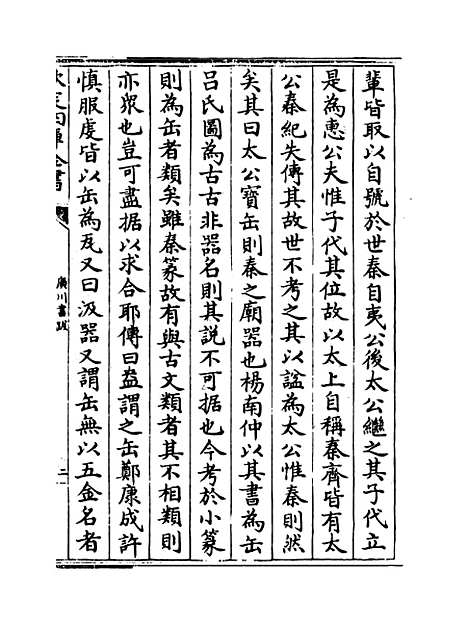 軰皆取以自號於世秦自夷公後太公繼之其子代立
是為惠公夫惟子代其位故以太上自稱秦齊皆有太
公秦紀失傳其故世不考之其以諡為太公惟秦則然
矣其曰太公寶缶則秦之廟器也楊南仲以其書為缶
吕氏圖為古古非器名則其說不可据也今考於小篆
則為缶者類矣雖秦篆故有與古文類者其不相類則
亦衆也豈可盡据以求合耶傳曰盎謂之缶鄭康成許
慎服虔皆以缶為瓦又曰汲器又謂缶無以五金名者
欽定四庫全書
廣川書跋
二